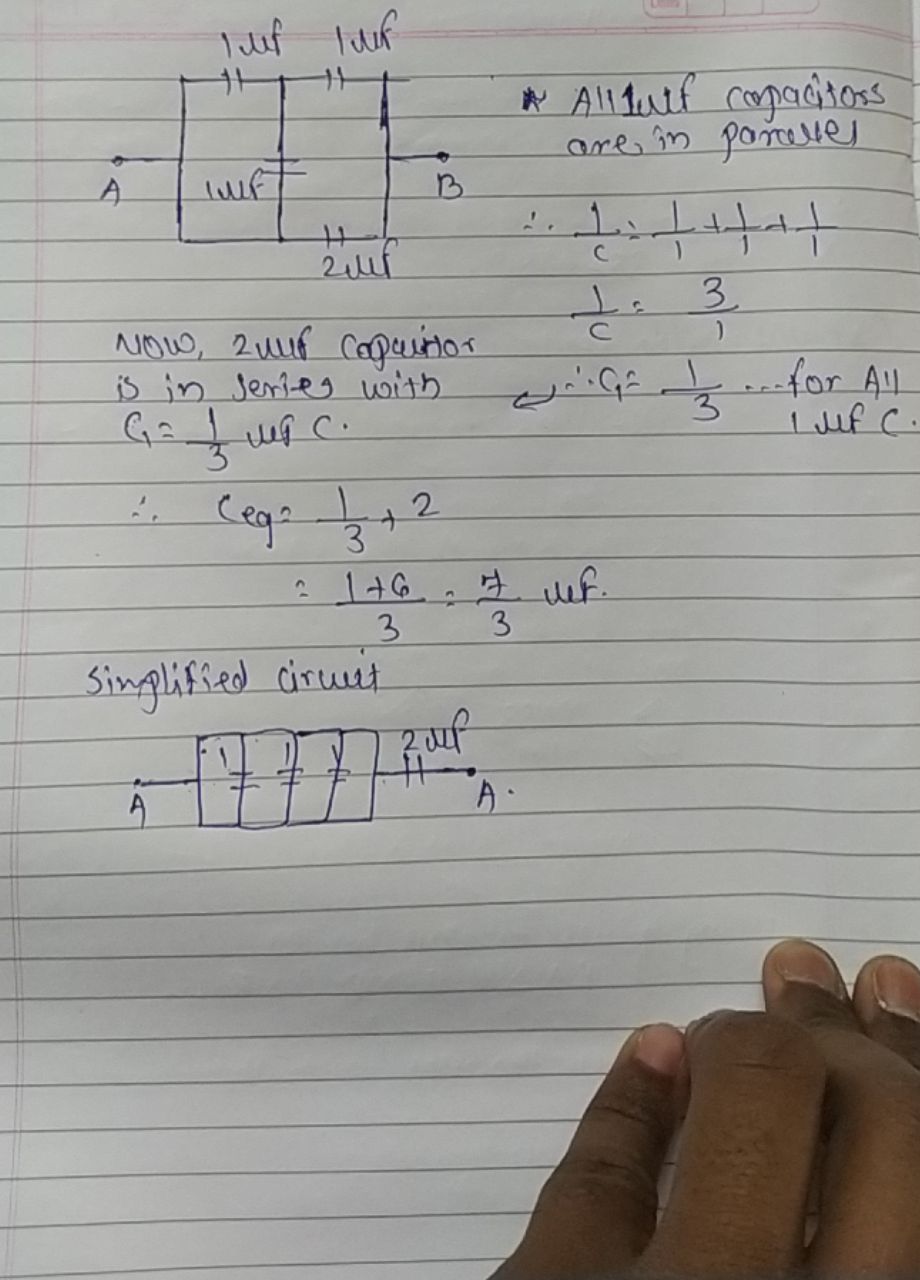 1 μf 1 μf
A 1 μF B
2 μf
* All 1 μf capacitors
are in parallel
∴ 1/C = 1/1 + 1/1 + 1/1
1/C = 3/1
∴ C₁ = 1/3 ... for All
1 μf C.
Now, 2 μf capacitor
is in series with
C₁ = 1/3 μf C.
∴ Ceq = 1/3 + 2
= 1+6/3 = 7/3 μf.
Simplified circuit
1 1 1 2 μf
A A.